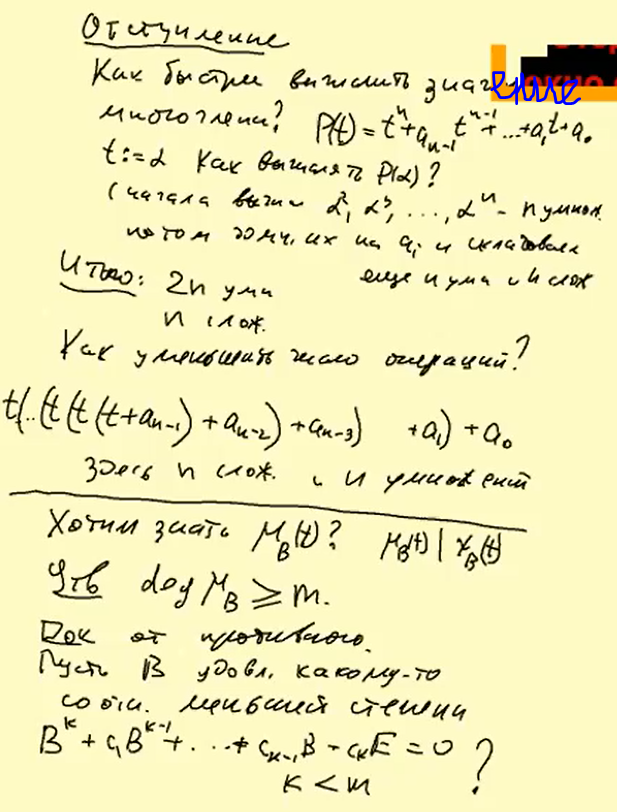 Отступление
Как быстрее вычислить значение
многочлена? P(t) = tⁿ + aₙ₋₁ tⁿ⁻¹ + ... + a₁t + a₀
t := α Как вычислять P(α)?
Сначала вычисл α², α³, ..., αⁿ - n умнож.
потом домн. их на aᵢ и складываем
Итого: 2n умн еще n умн и n слож
n слож.
Как уменьшить число операций?
t(..(t(t(t(t+aₙ₋₁)+aₙ₋₂)+aₙ₋₃) +a₁)+a₀
здесь n слож. и n умножений
Хотим знать μ_B(t)? μ_B(t) | χ_B(t)
Утв deg μ_B ≥ m.
Док от противного.
Пусть B удовл. какому-то
соотн. меньшей степени
Bᵏ + c₁Bᵏ⁻¹ + ... + cₖ₋₁B - cₖE = 0 ?
k < m